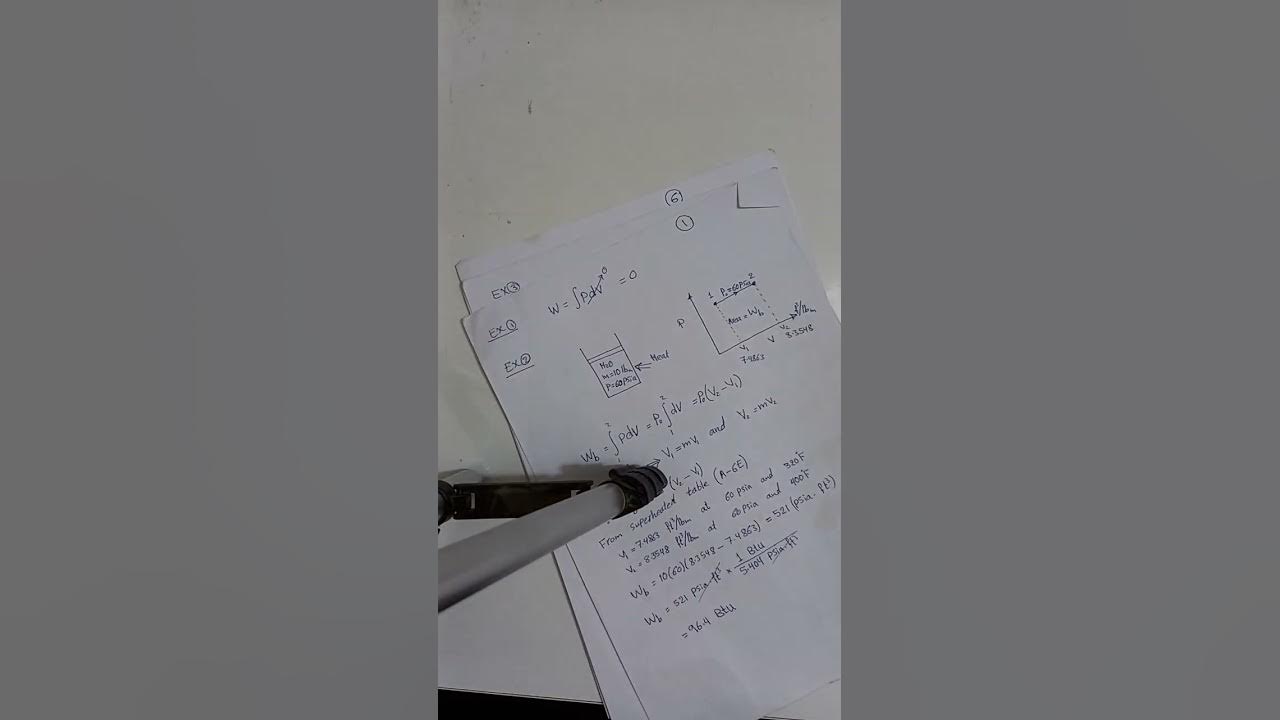 6
1
EX③
W = ∫PdV⁰ = 0
EX①
EX②
H₂O
m=10 lbm
P=60 psia
Heat
P
1 P₀=60 psia 2
Area = Wb
ft³/lbm
V₁ V V₂
7.4863 8.3548
Wb = ∫₁² PdV = P₀ ∫₁² dV = P₀(V₂ - V₁)
V₁ = mV₁ and V₂ = mV₂
(V₂ - V₁)
From superheated table (A-6E)
V₁ = 7.4863 ft³/lbm at 60 psia and 320°F
V₂ = 8.3548 ft³/lbm at 60 psia and 400°F
Wb = 10(60)(8.3548 - 7.4863) = 521 (psia. ft³)
Wb = 521 psia-ft³ × 1 Btu / 5.404 psia-ft³
= 96.4 Btu